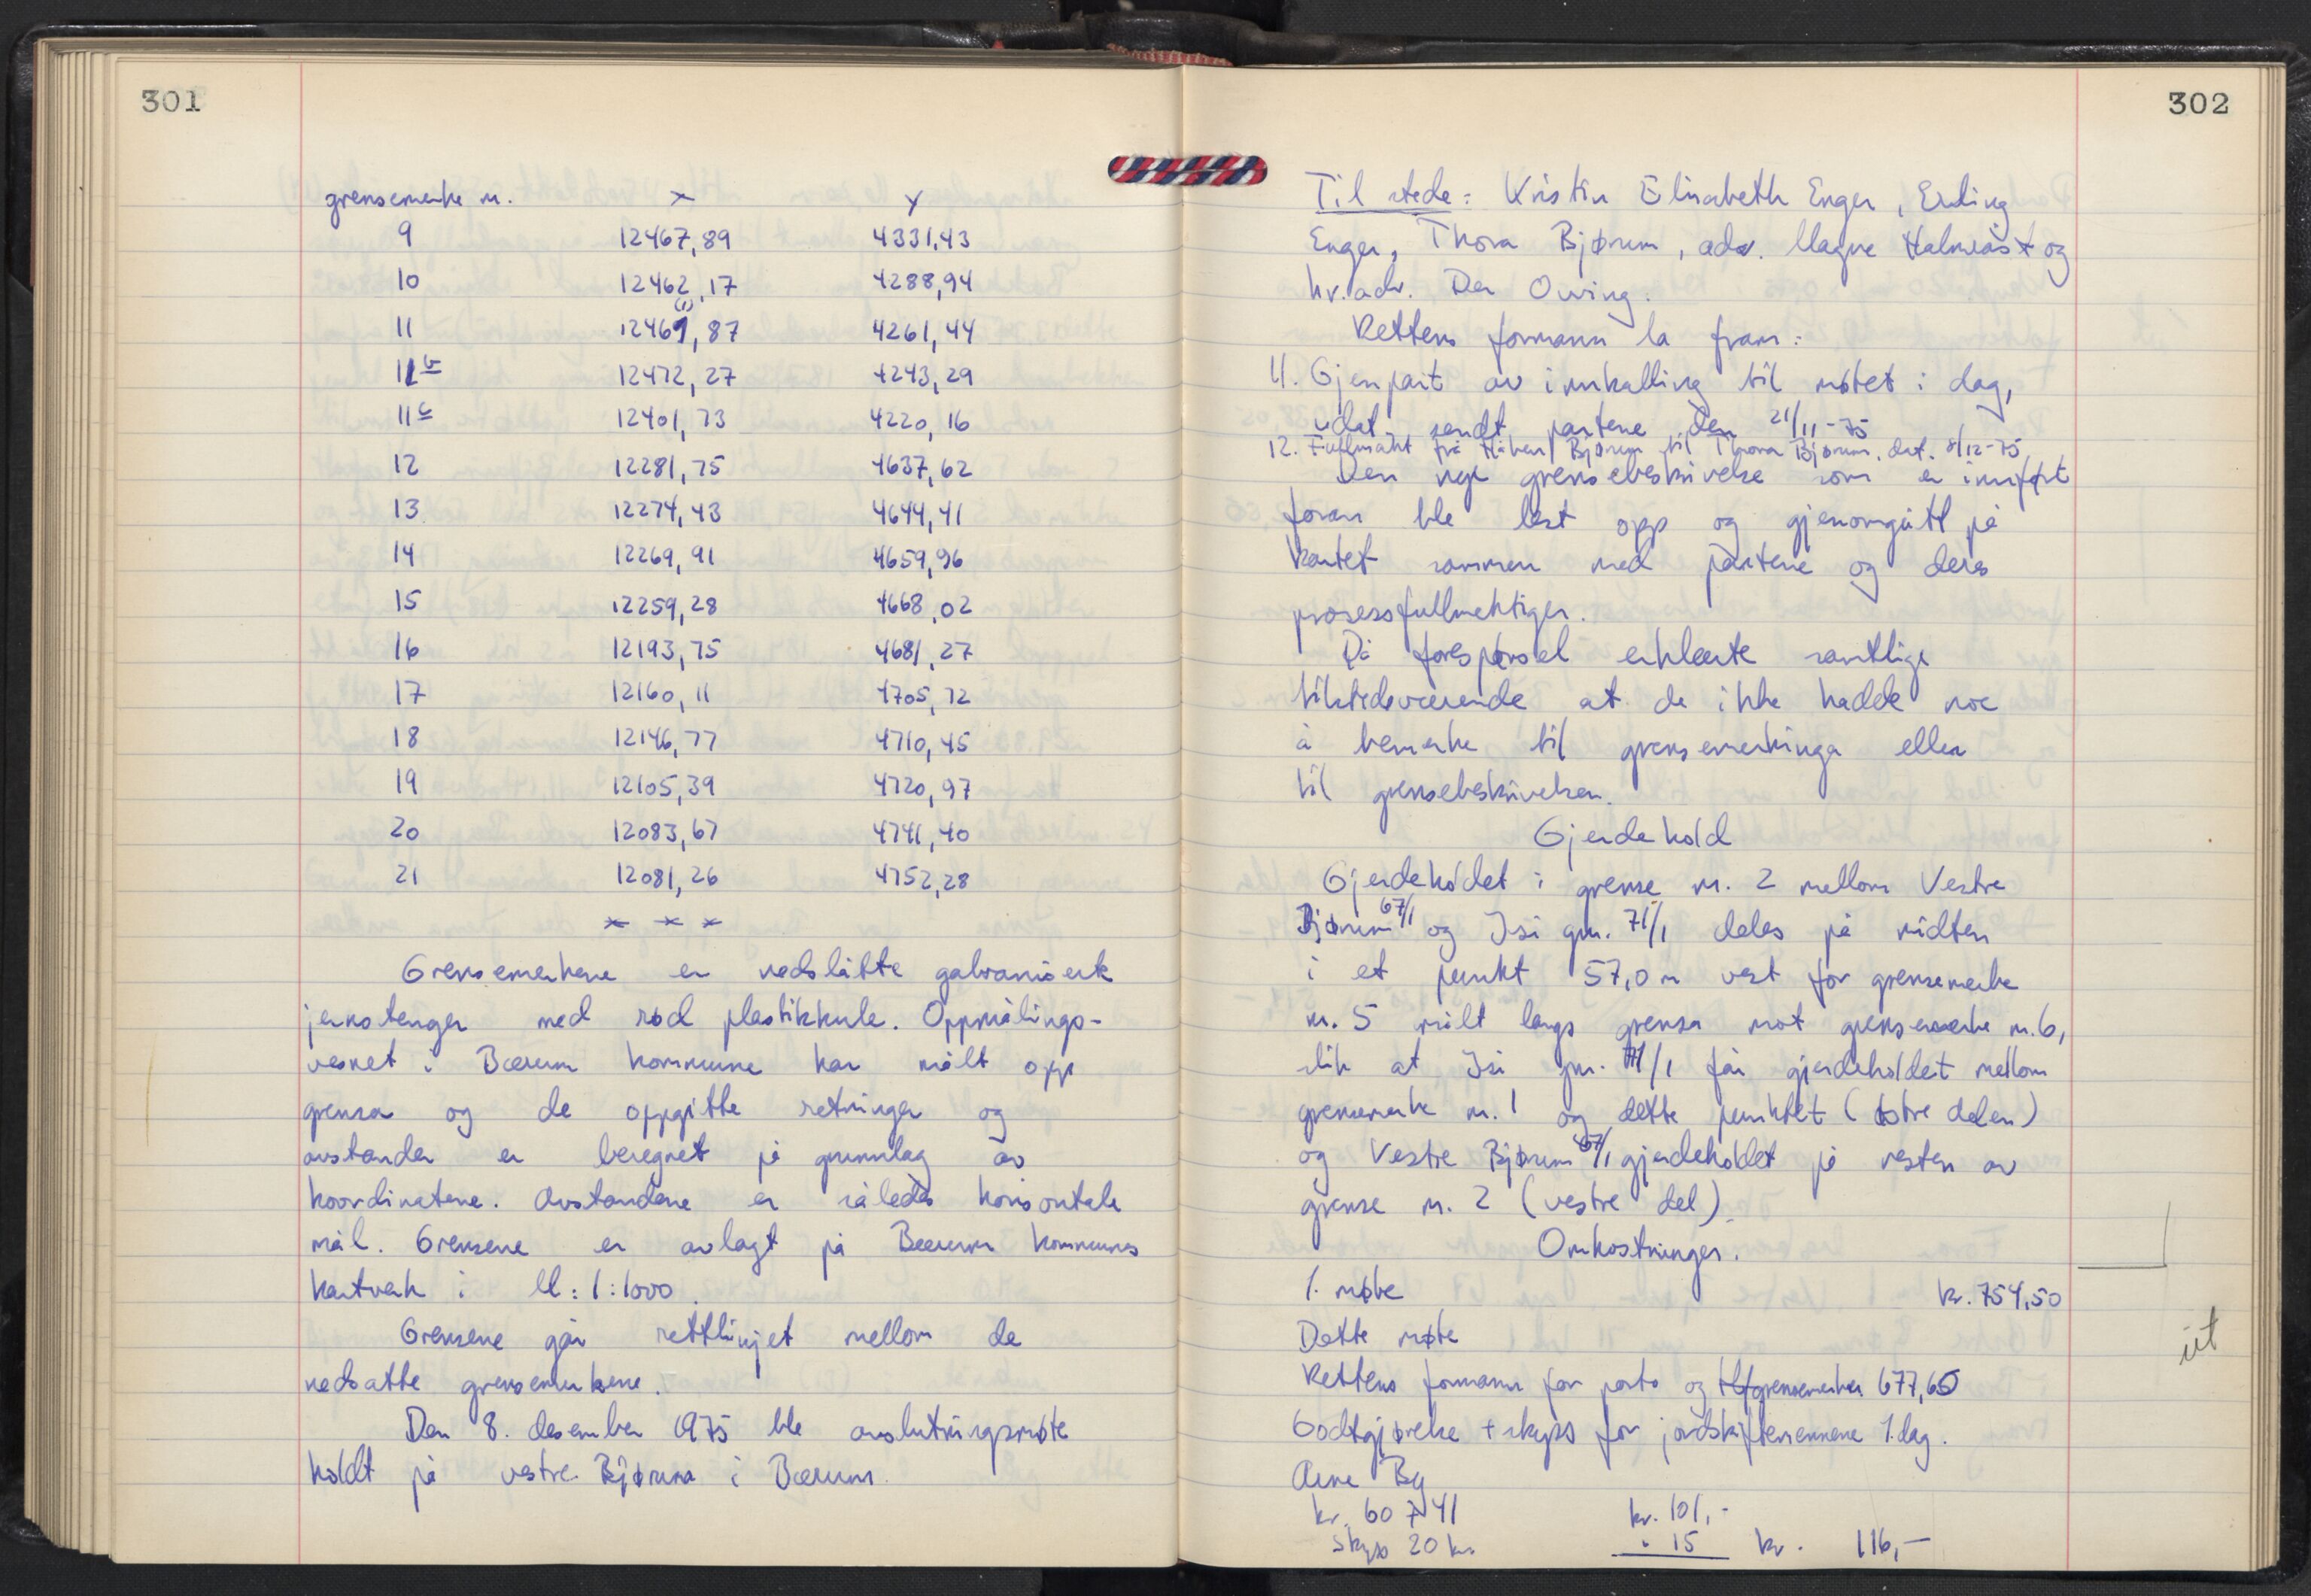 301
grensemerke nr. x y
9 12467,89 4331,43
10 12462,17 4288,94
11 12461,87 4261,44
11b 12472,27 4243,29
11c 12401,73 4220,16
12 12281,75 4637,62
13 12274,43 4644,41
14 12269,91 4659,96
15 12259,28 4668,02
16 12193,75 4681,27
17 12160,11 4705,72
18 12146,77 4710,45
19 12105,39 4720,97
20 12083,67 4741,40
21 12081,26 4752,28
* * *
Grensemerkene er nedslåtte galvaniserte
jernstenger med rød plastikkule. Oppmålings-
vesnet i Bærum kommune har målt opp
grensa og de oppgitte retninger og
avstander er beregnet på grunnlag av
koordinatene. Avstandene er således horisontale
mål. Grensene er avlagt på Bærum kommunes
kartverk i M: 1:1000.
Grensene går rettlinjet mellom de
nedsatte grensemerkene.
Den 8. desember 1975 ble avslutningsmøte
holdt på vestre Bjørum i Bærum.
302
Til stede: Kristin Elisabeth Enger, Erling
Enger, Thora Bjørum, adv. Magne Halmrast og
hr.adv. Per Oving.
Rettens formann la fram:
11. Gjenpart av innkalling til møtet i dag,
udat. sendt partene den 21/11-75
12. Fullmakt fra Håkon Bjørum til Thora Bjørum, dat. 8/12-75
Den nye grensebeskrivelse som er innført
foran ble lest opp og gjenomgått på
kartet sammen med partene og deres
prosessfullmektiger.
På forespørsel erklærte samtlige
tilstedeværende at de ikke hadde noe
å bemerke til grensemerkinga eller
til grensebeskrivelsen.
Gjerdehold
Gjerdeholdet i grense nr. 2 mellom Vestre
Bjørum 67/1 og Isi gnr. 71/1 deles på midten
i et punkt 57,0 m vest for grensemerke
nr. 5 målt langs grensa mot grensemerke nr. 6,
slik at Isi gnr. 71/1 får gjerdeholdet mellom
grensemerke nr. 1 og dette punktet (østre delen)
og Vestre Bjørum 67/1 gjerdeholdet på resten av
grense nr. 2 (vestre del).
Omkostninger.
1. møte kr. 754,50
Dette møte
Rettens formann for porto og tlf grensemerker 677,65
Godtgjørelse + skyss for jordskiftemennene 1. dag.
Arne By
kr. 60 + 41 kr. 101,-
Skyss 20 km " 15 kr. 116,-
ut